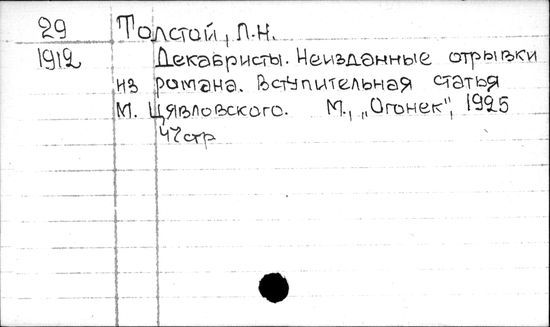 29 Толстой, Л.Н.
1912 Декабристы. Неизданные отрывки
из романа. Вступительная статья
М. Цявловского. М., „Огонек", 1925
47стр